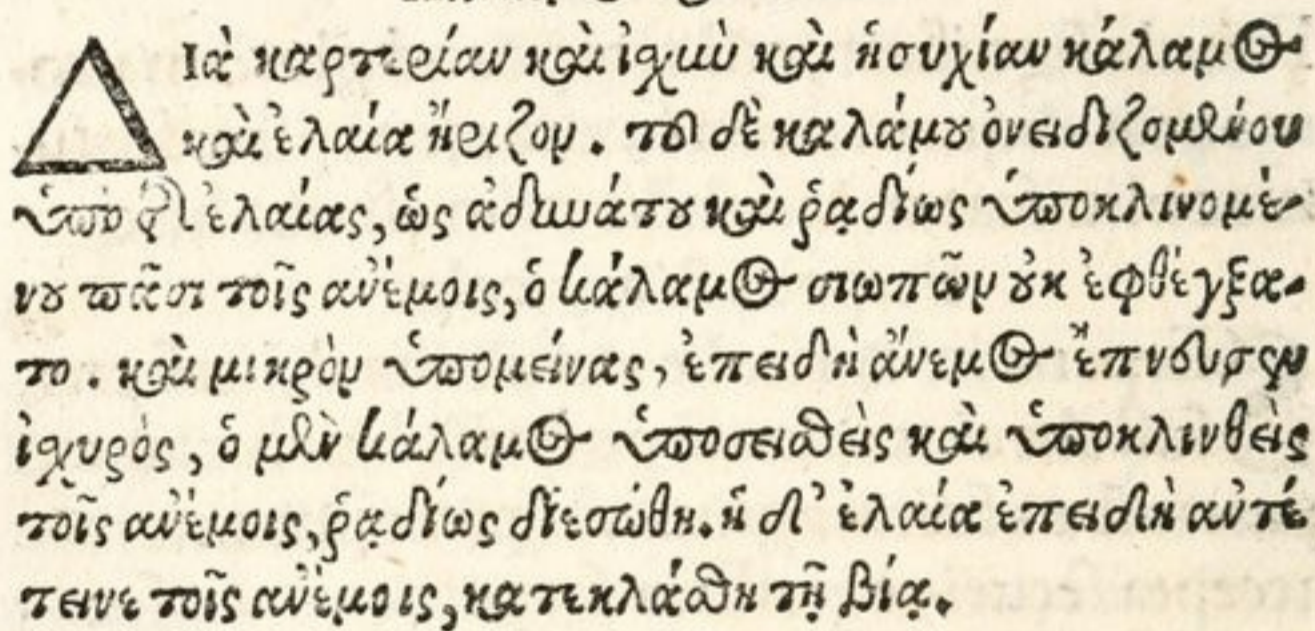 ΔΙὰ καρτερίαν καὶ ἰσχὺν καὶ ἡσυχίαν κάλαμος
καὶ ἐλαία ἤριζον. τοῦ δὲ καλάμου ὀνειδιζομένου
ὑπὸ τῆς ἐλαίας, ὡς ἀδυνάτου καὶ ῥᾳδίως ὑποκλινομέ-
νου πᾶσι τοῖς ἀνέμοις, ὁ κάλαμος σιωπῶν οὐκ ἐφθέγξα-
το. καὶ μικρὸν ὑπομείνας, ἐπειδὴ ἄνεμος ἔπνευσεν
ἰσχυρὸς, ὁ μὲν κάλαμος ὑποσεισθεὶς καὶ ὑποκλινθεὶς
τοῖς ἀνέμοις, ῥᾳδίως διεσώθη. ἡ δ' ἐλαία ἐπειδὴ ἀντέ
τεινε τοῖς ἀνέμοις, κατεκλάσθη τῇ βίᾳ.